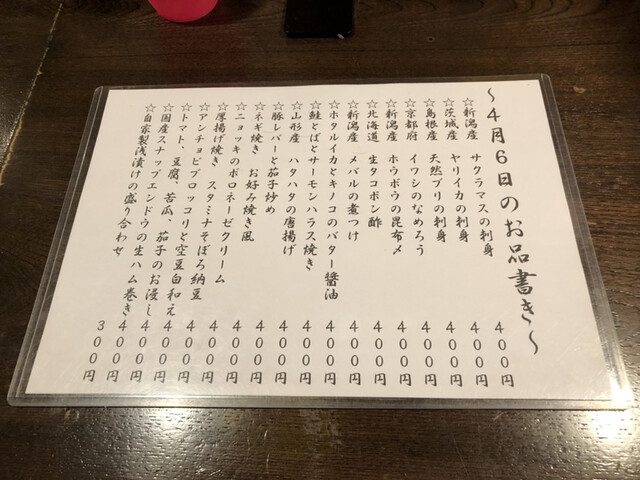 ～4月6日のお品書き～
☆新潟産 サクラマスの刺身 400円
☆茨城産 ヤリイカの刺身 400円
☆島根産 天然ブリの刺身 400円
☆京都府 イワシのなめろう 400円
☆新潟産 ホウボウの昆布〆 400円
☆北海道 生タコポン酢 400円
☆新潟産 メバルの煮つけ 400円
☆ホタルイカとキノコのバター醤油 400円
☆鮭とばとサーモンハラス焼き 400円
☆山形産 ハタハタの唐揚げ 400円
☆豚レバーと茄子炒め 400円
☆ネギ焼き お好み焼き風 400円
☆ニョッキのボロネーゼクリーム 400円
☆厚揚げ焼き スタミナそぼろ納豆 400円
☆アンチョビブロッコリと空豆白和え 400円
☆トマト、豆腐、苦瓜、茄子のお浸し 400円
☆国産スナップエンドウの生ハム巻き 400円
☆自家製浅漬けの盛り合わせ 300円